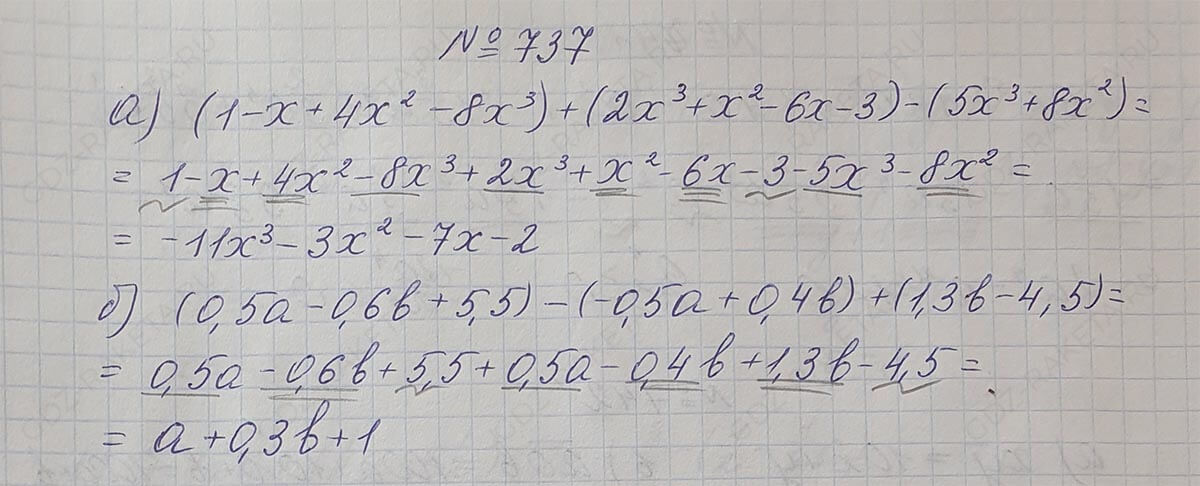 № 737
а) (1-x+4x²-8x³)+(2x³+x²-6x-3)-(5x³+8x²)=
= 1-x+4x²-8x³+2x³+x²-6x-3-5x³-8x² =
= -11x³-3x²-7x-2
б) (0,5a-0,6b+5,5)-(-0,5a+0,4b)+(1,3b-4,5)=
= 0,5a-0,6b+5,5+0,5a-0,4b+1,3b-4,5=
= a+0,3b+1